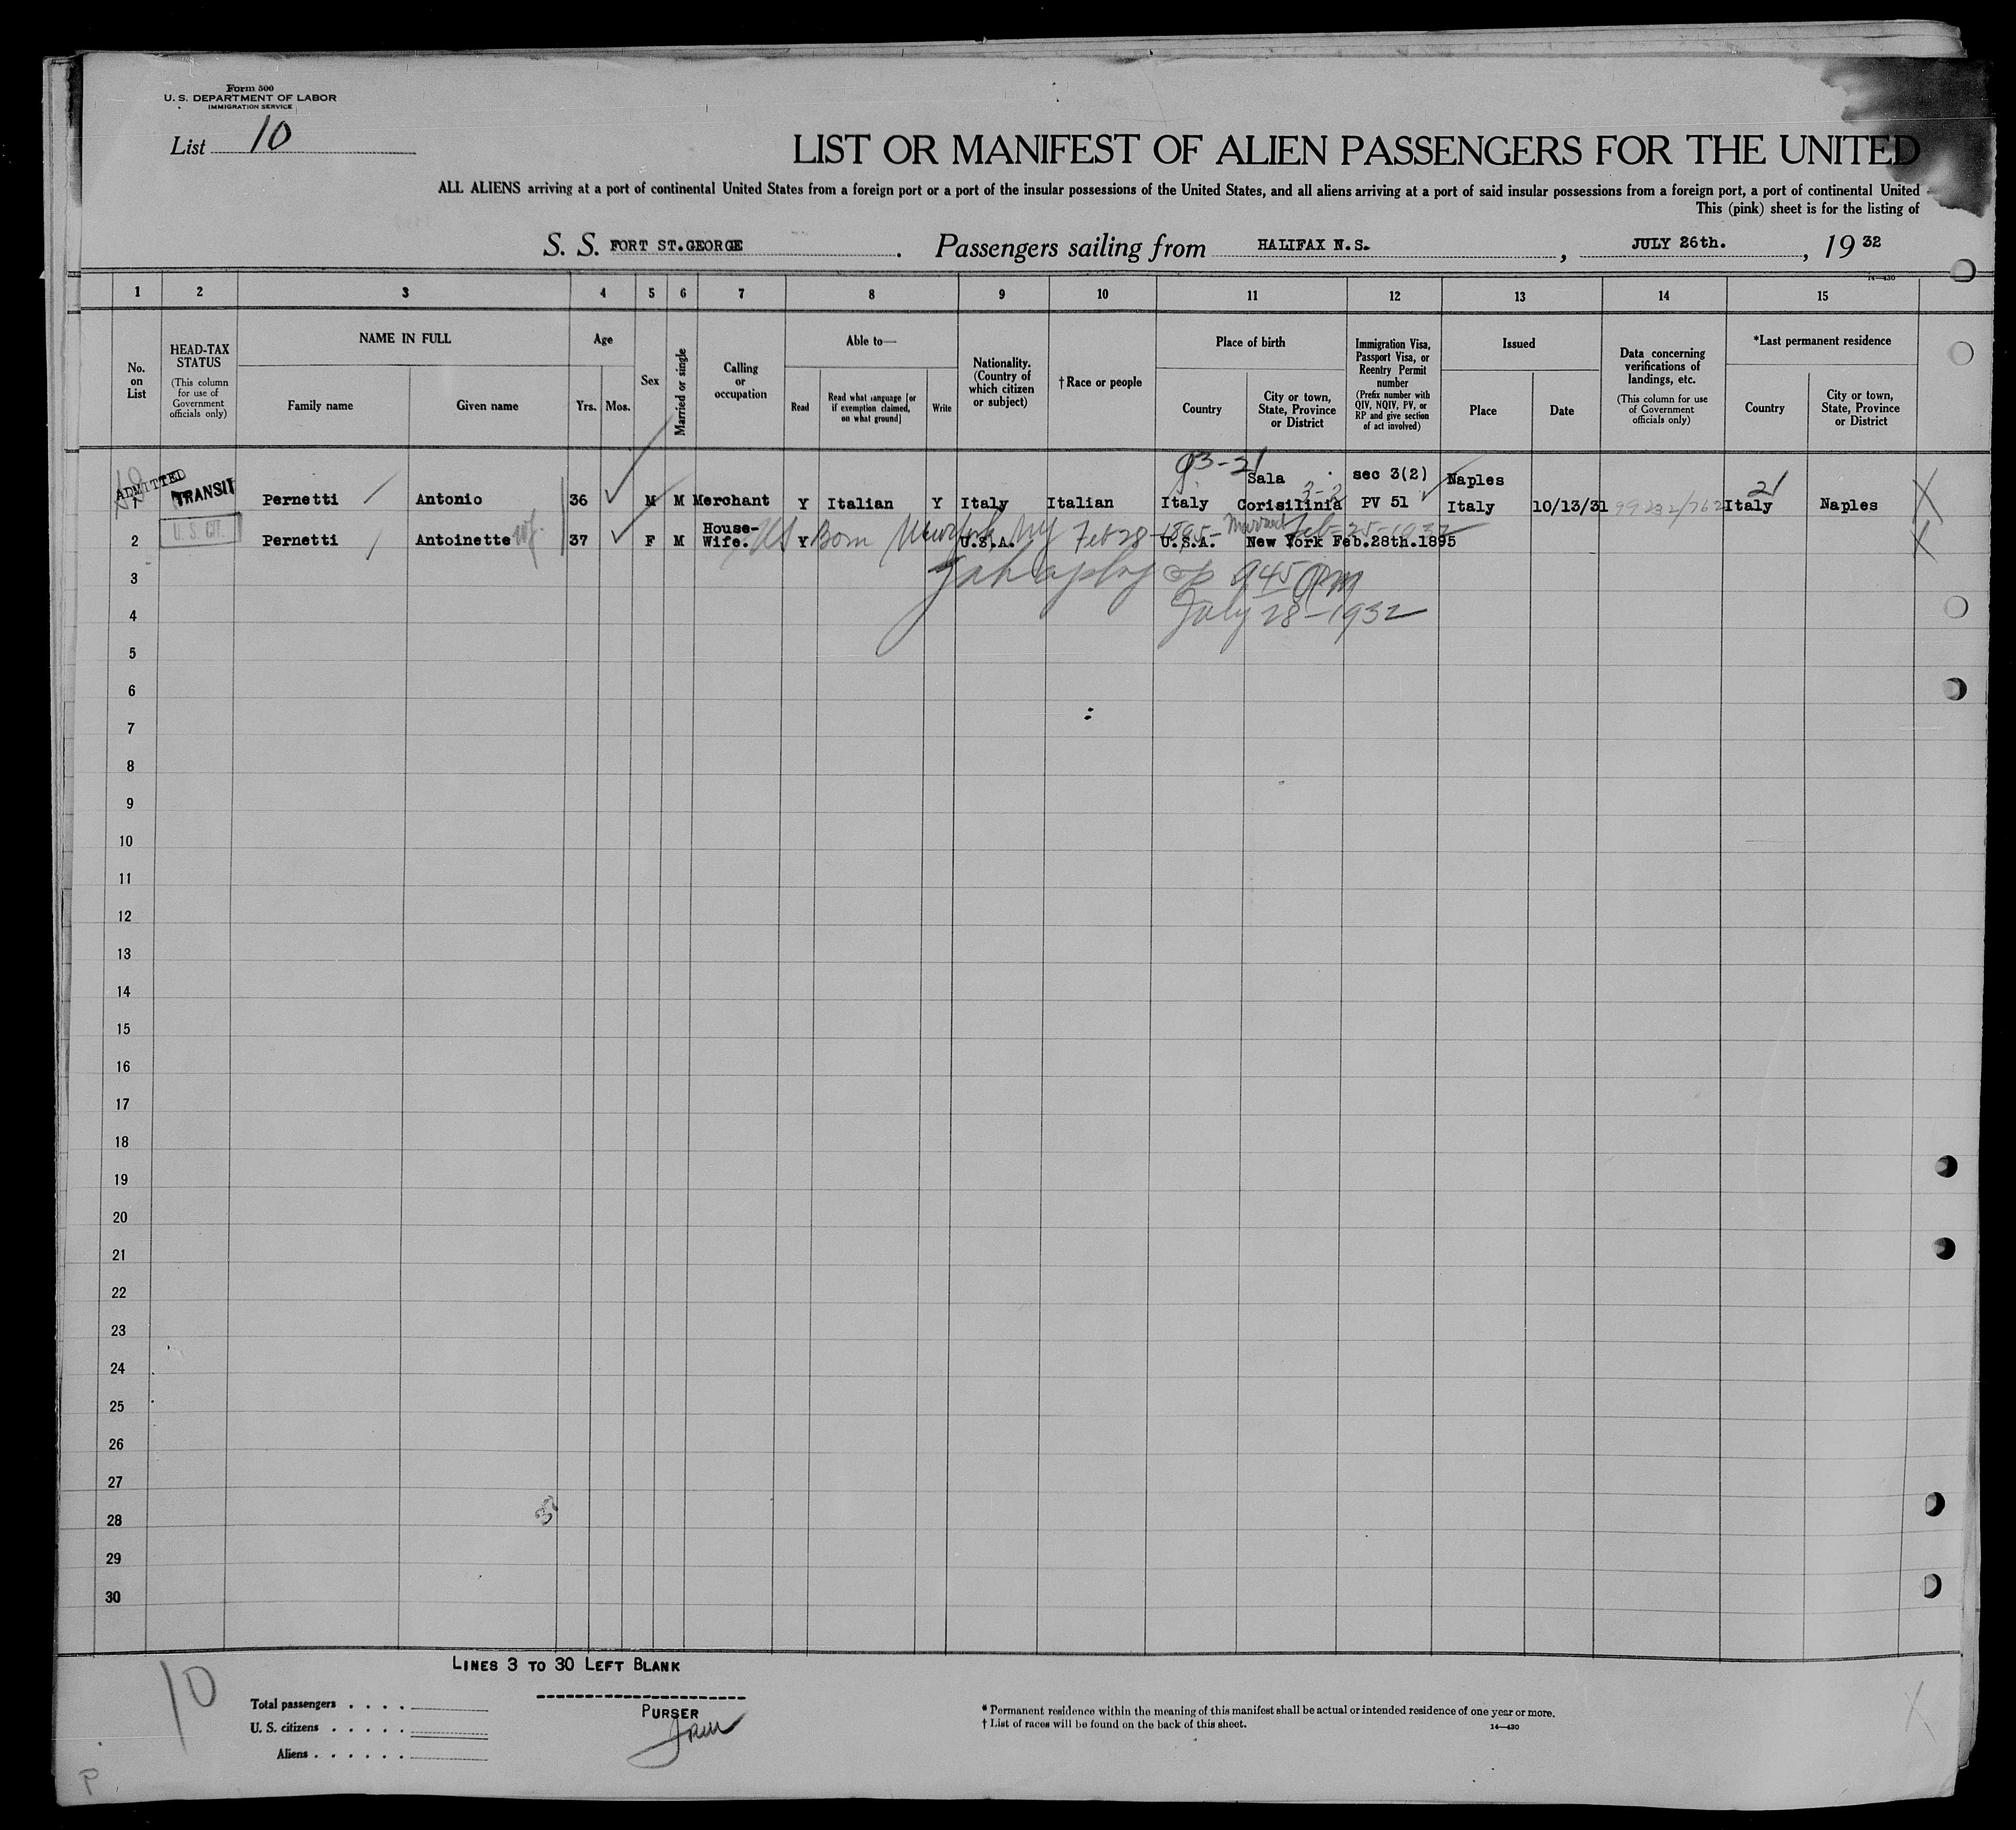 Form 500
U. S. DEPARTMENT OF LABOR
IMMIGRATION SERVICE
List 10
LIST OR MANIFEST OF ALIEN PASSENGERS FOR THE UNITED
ALL ALIENS arriving at a port of continental United States from a foreign port or a port of the insular possessions of the United States, and all aliens arriving at a port of said insular possessions from a foreign port, a port of continental United
This (pink) sheet is for the listing of
S. S. FORT ST.GEORGE. Passengers sailing from HALIFAX N.S., JULY 26th., 19 32
14—430
1 2 3 4 5 6 7 8 9 10 11 12 13 14 15
No. on List
HEAD-TAX STATUS
(This column for use of Government officials only)
NAME IN FULL
Family name
Given name
Age
Yrs. Mos.
Sex
Married or single
Calling or occupation
Able to—
Read
Read what language [or if exemption claimed, on what ground]
Write
Nationality. (Country of which citizen or subject)
†Race or people
Place of birth
Country
City or town, State, Province or District
Immigration Visa, Passport Visa, or Reentry Permit number
(Prefix number with QIV, NQIV, PV, or RP and give section of act involved)
Issued
Place
Date
Data concerning verifications of landings, etc.
(This column for use of Government officials only)
*Last permanent residence
Country
City or town, State, Province or District
93-21
Sala sec 3(2) Naples
ADMITTED
TRANSIT
1 Pernetti Antonio 36 M M Merchant Y Italian Y Italy Italian Italy Corisilinia PV 51 Italy 10/13/31 99232/762 Italy Naples
21
U. S. CIT.
House-
2 Pernetti Antoinette wf. 37 F M Wife. Y U.S.A. U.S.A. New York Feb.28th.1895
US Born New York NY Feb 28-1895- Married Feb-25-1932
3
945 PM
4
July 28-1932
5
6
7
8
9
10
11
12
13
14
15
16
17
18
19
20
21
22
23
24
25
26
27
28
29
30
LINES 3 TO 30 LEFT BLANK
10
PURSER
Total passengers . . . .
U. S. citizens . . . . .
Aliens . . . . . .
* Permanent residence within the meaning of this manifest shall be actual or intended residence of one year or more.
† List of races will be found on the back of this sheet.
14—430
P